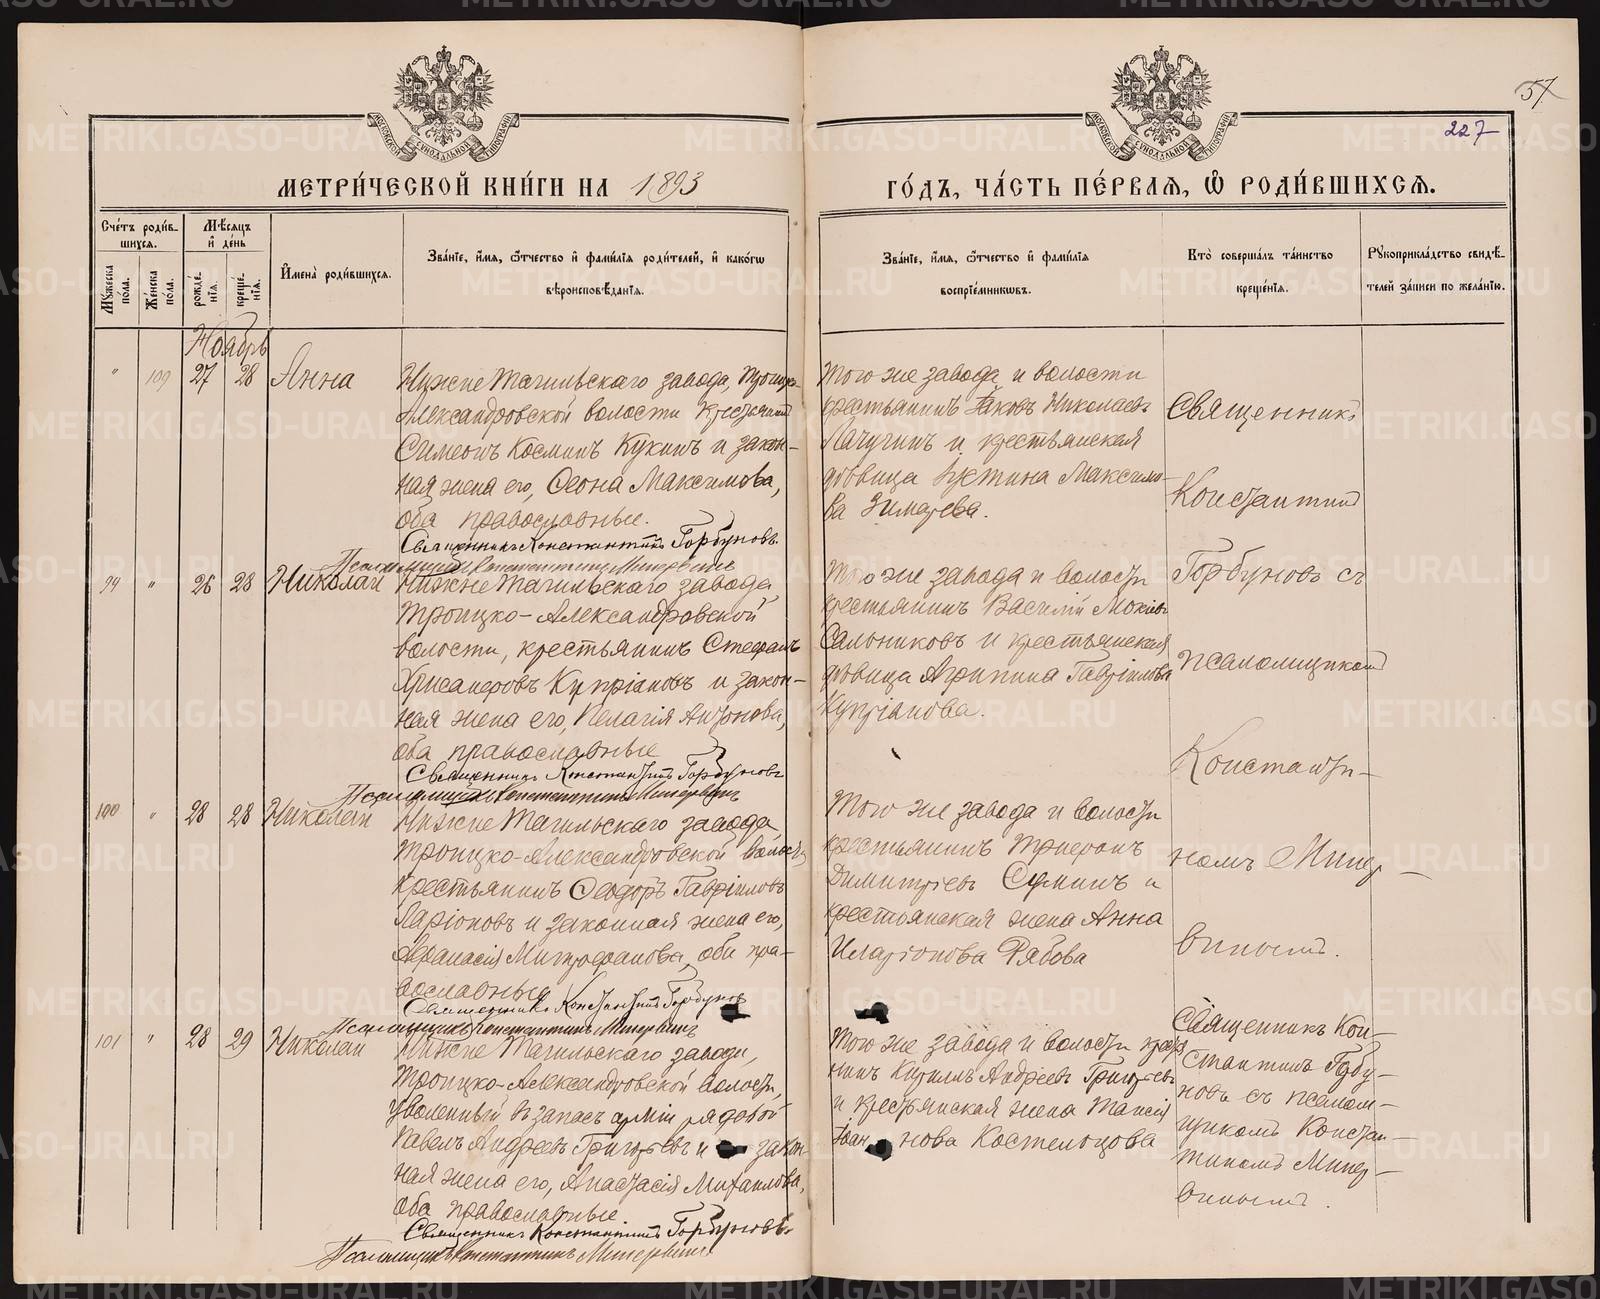 57
227
МЕТРИ́ЧЕСКОЙ КНИ́ГИ НА 1893
ГО́ДЪ, ЧА́СТЬ ПЕ́РВАѦ, Ѡ҆ РОДИ́ВШИХСѦ.
Сче́тъ роди́в-
шихся.
Мѣ́сяцъ
и҆ де́нь
Мꙋ́жеска
по́ла.
Же́нска
по́ла.
рожде́-
нїя.
креще́-
нїя.
И҆мена̀ роди́вшихся.
Зва́нїе, и҆́мя, ѻ҆́тчество и҆ фами́лїя роди́телей, и҆ како́гѡ
вѣроисповѣ́данїя.
Зва́нїе, и҆́мя, ѻ҆́тчество и҆ фами́лїя
воспрїе́мникѡвъ.
Кто̀ соверша́лъ та́инство
креще́нїя.
Рꙋкоприкла́дство свидѣ́-
телей за́писи по жела́нїю.
Ноябрь
" 109 27 28 Анна
Нижне Тагильскаго завода, Троицко-
Александровской волости крестьянинъ
Симеонъ Косминъ Кукинъ и закон-
ная жена его, Ѳеона Максимова,
оба православные.
Священникъ Константинъ Горбуновъ.
Псаломщикъ Константинъ Минервинъ
Того же завода и волости
крестьянинъ Іаковъ Николаевъ
Лачугинъ и крестьянская
вдовица Іустина Максимо-
ва Зимарева.
Священникъ
Константинъ
99 " 26 28 Николай
Нижне Тагильскаго завода
Троицко-Александровской
волости, крестьянинъ Стефанъ
Хрисанѳовъ Купріановъ и закон-
ная жена его, Пелагія Антонова,
оба православные
Священникъ Константинъ Горбуновъ
Псаломщикъ Константинъ Минервинъ
Того же завода и волости
крестьянинъ Василій Мокіевъ
Сальниковъ и крестьянская
вдовица Агрипина Гавріилова
Купріанова.
Горбуновъ съ
псаломщикомъ
Константи-
100 " 28 28 Николай
Нижне Тагильскаго завода
Троицко-Александровской волости
крестьянинъ Ѳеодоръ Гавріиловъ
Ларіоновъ и законная жена его,
Афанасія Митрофанова, оба пра-
вославные
Священникъ Константинъ Горбуновъ
Псаломщикъ Константинъ Минервинъ
Того же завода и волости
крестьянинъ Трифонъ
Димитріевъ Суминъ и
крестьянская жена Анна
Иларіонова Рябова
номъ Минер-
винымъ.
101 " 28 29 Николай
Нижне Тагильскаго завода,
Троицко-Александровской волости,
уволенный въ запасъ арміи рядовой
Павелъ Андреевъ Григорьевъ и закон-
ная жена его, Анастасія Михаилова,
оба православные
Священникъ Константинъ Горбуновъ.
Псаломщикъ Константинъ Минервинъ
Того же завода и волости кресть-
нинъ Кириллъ Андреевъ Григорьевъ
и крестьянская жена Таисія
Іоаннова Костенцова
Священникъ Кон-
стантинъ Горбу-
новъ съ псалом-
щикомъ Констан-
тиномъ Минер-
винымъ.